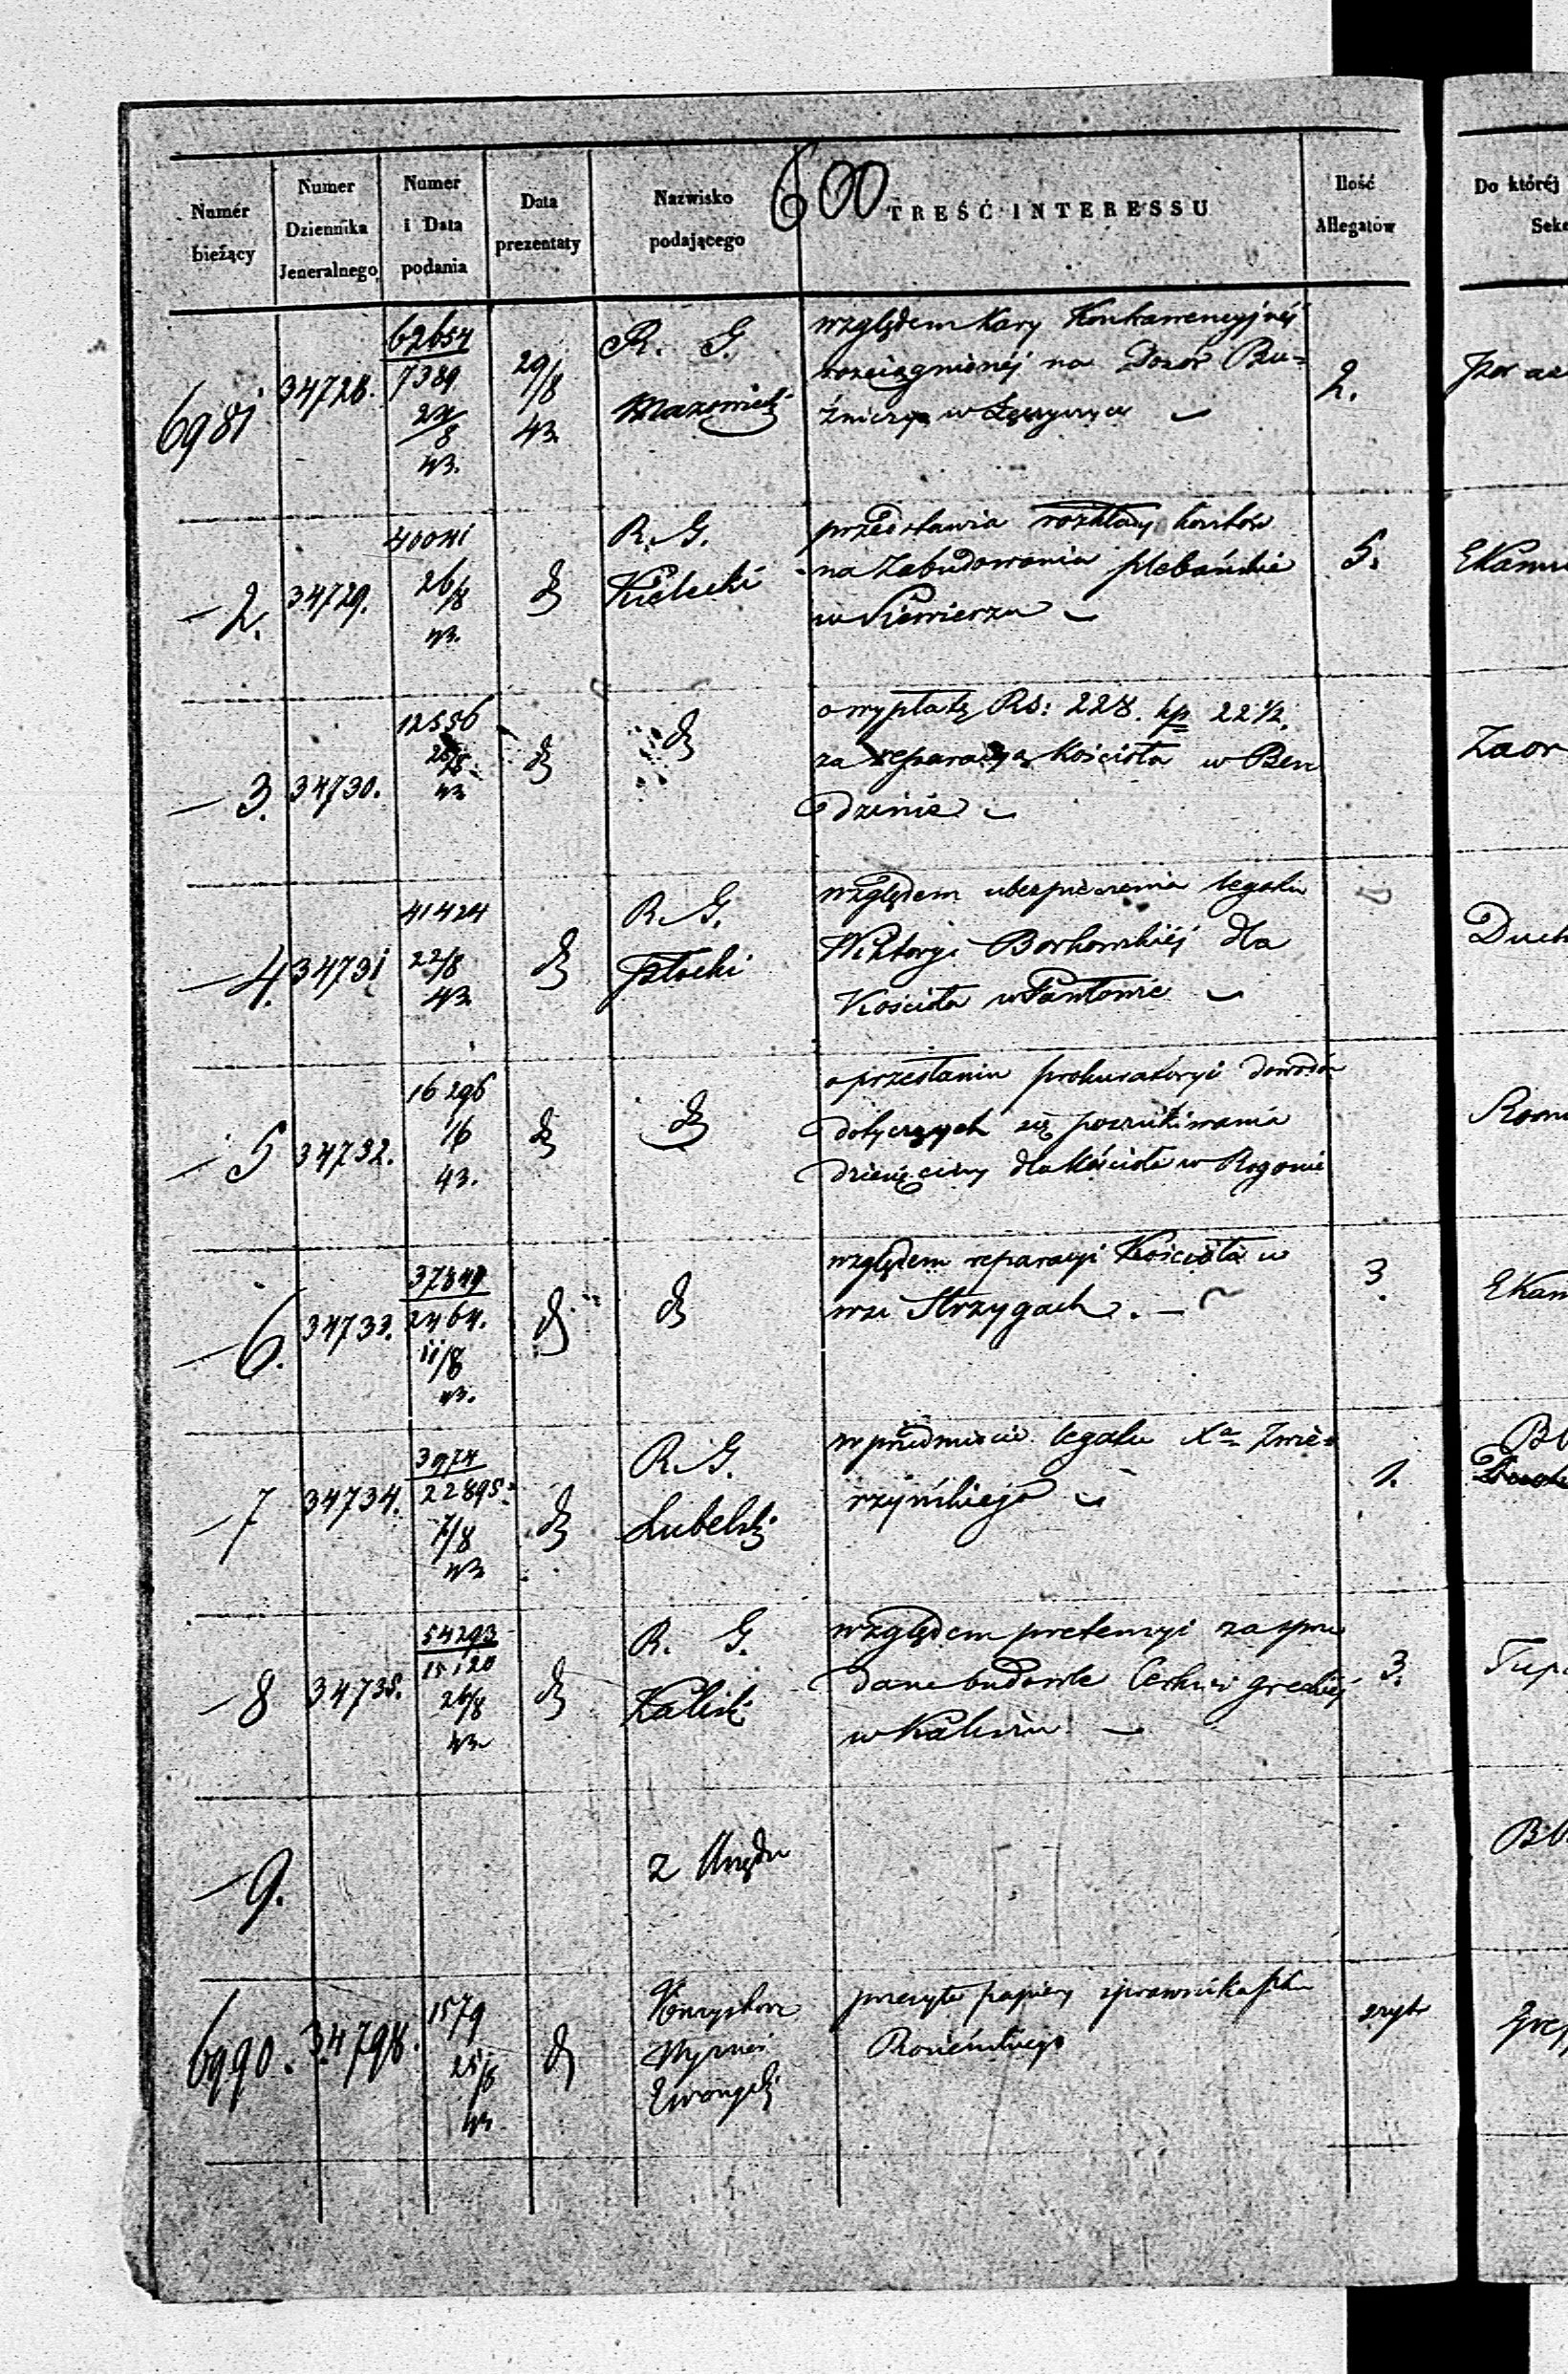 600
Numer bieżący
Numer Dziennika Jeneralnego
Numer i Data podania
Data prezentaty
Nazwisko podającego
TREŚĆ INTERESSU
Ilość Allegatów
Do któréj
6981
34728.
62654
7389
43.
29/8
43.
R. G.
Mazowiecki
względem Kary Kontrawencyjnéj
rozciągnionéj na Dozór Bu=
żniczy w Łęczycy
2.
2.
34729.
26/8
43.
R. G.
Kielecki
przedstawia rozkłady kosztów
na Zabudowania plebańskie
w Siewierzu
5.
3.
34730.
12556
43
o wypłatę Rs: 228. kp 22 1/2.
za reparacyą Kościoła w Ben
dzinie
4.
34731
41424
22/8
43
R. G.
Płocki
względem ubezpieczenia legatu
Wiktoryi Borkowskiéj dla
Kościoła w
5
34732.
16296
16
43.
o przesłaniu prokuratoryi dowodów
dotyczących się poszukiwania
dziesięciny dla Kościoła w Rogowie
6.
34733.
2464.
11/8
43.
względem reparacyi Kościoła w
wsi Strzygach.
3.
7
34734.
3974
22895
7/8
43
R. G.
Lubelski
w przedmiocie legatu Xa Zwie=
rzyńskiego
1.
8
34735.
54293
15120
26/8
43
R. G.
Kaliski
względem pretensyi za sprze
dane budowle Cerkwi greckiéj
w Kaliszu
3.
9.
z Urzędu
6990.
34798.
1579
25/8
43
Konsystorz
Wyznań
Ewangeli
przesyła papiery